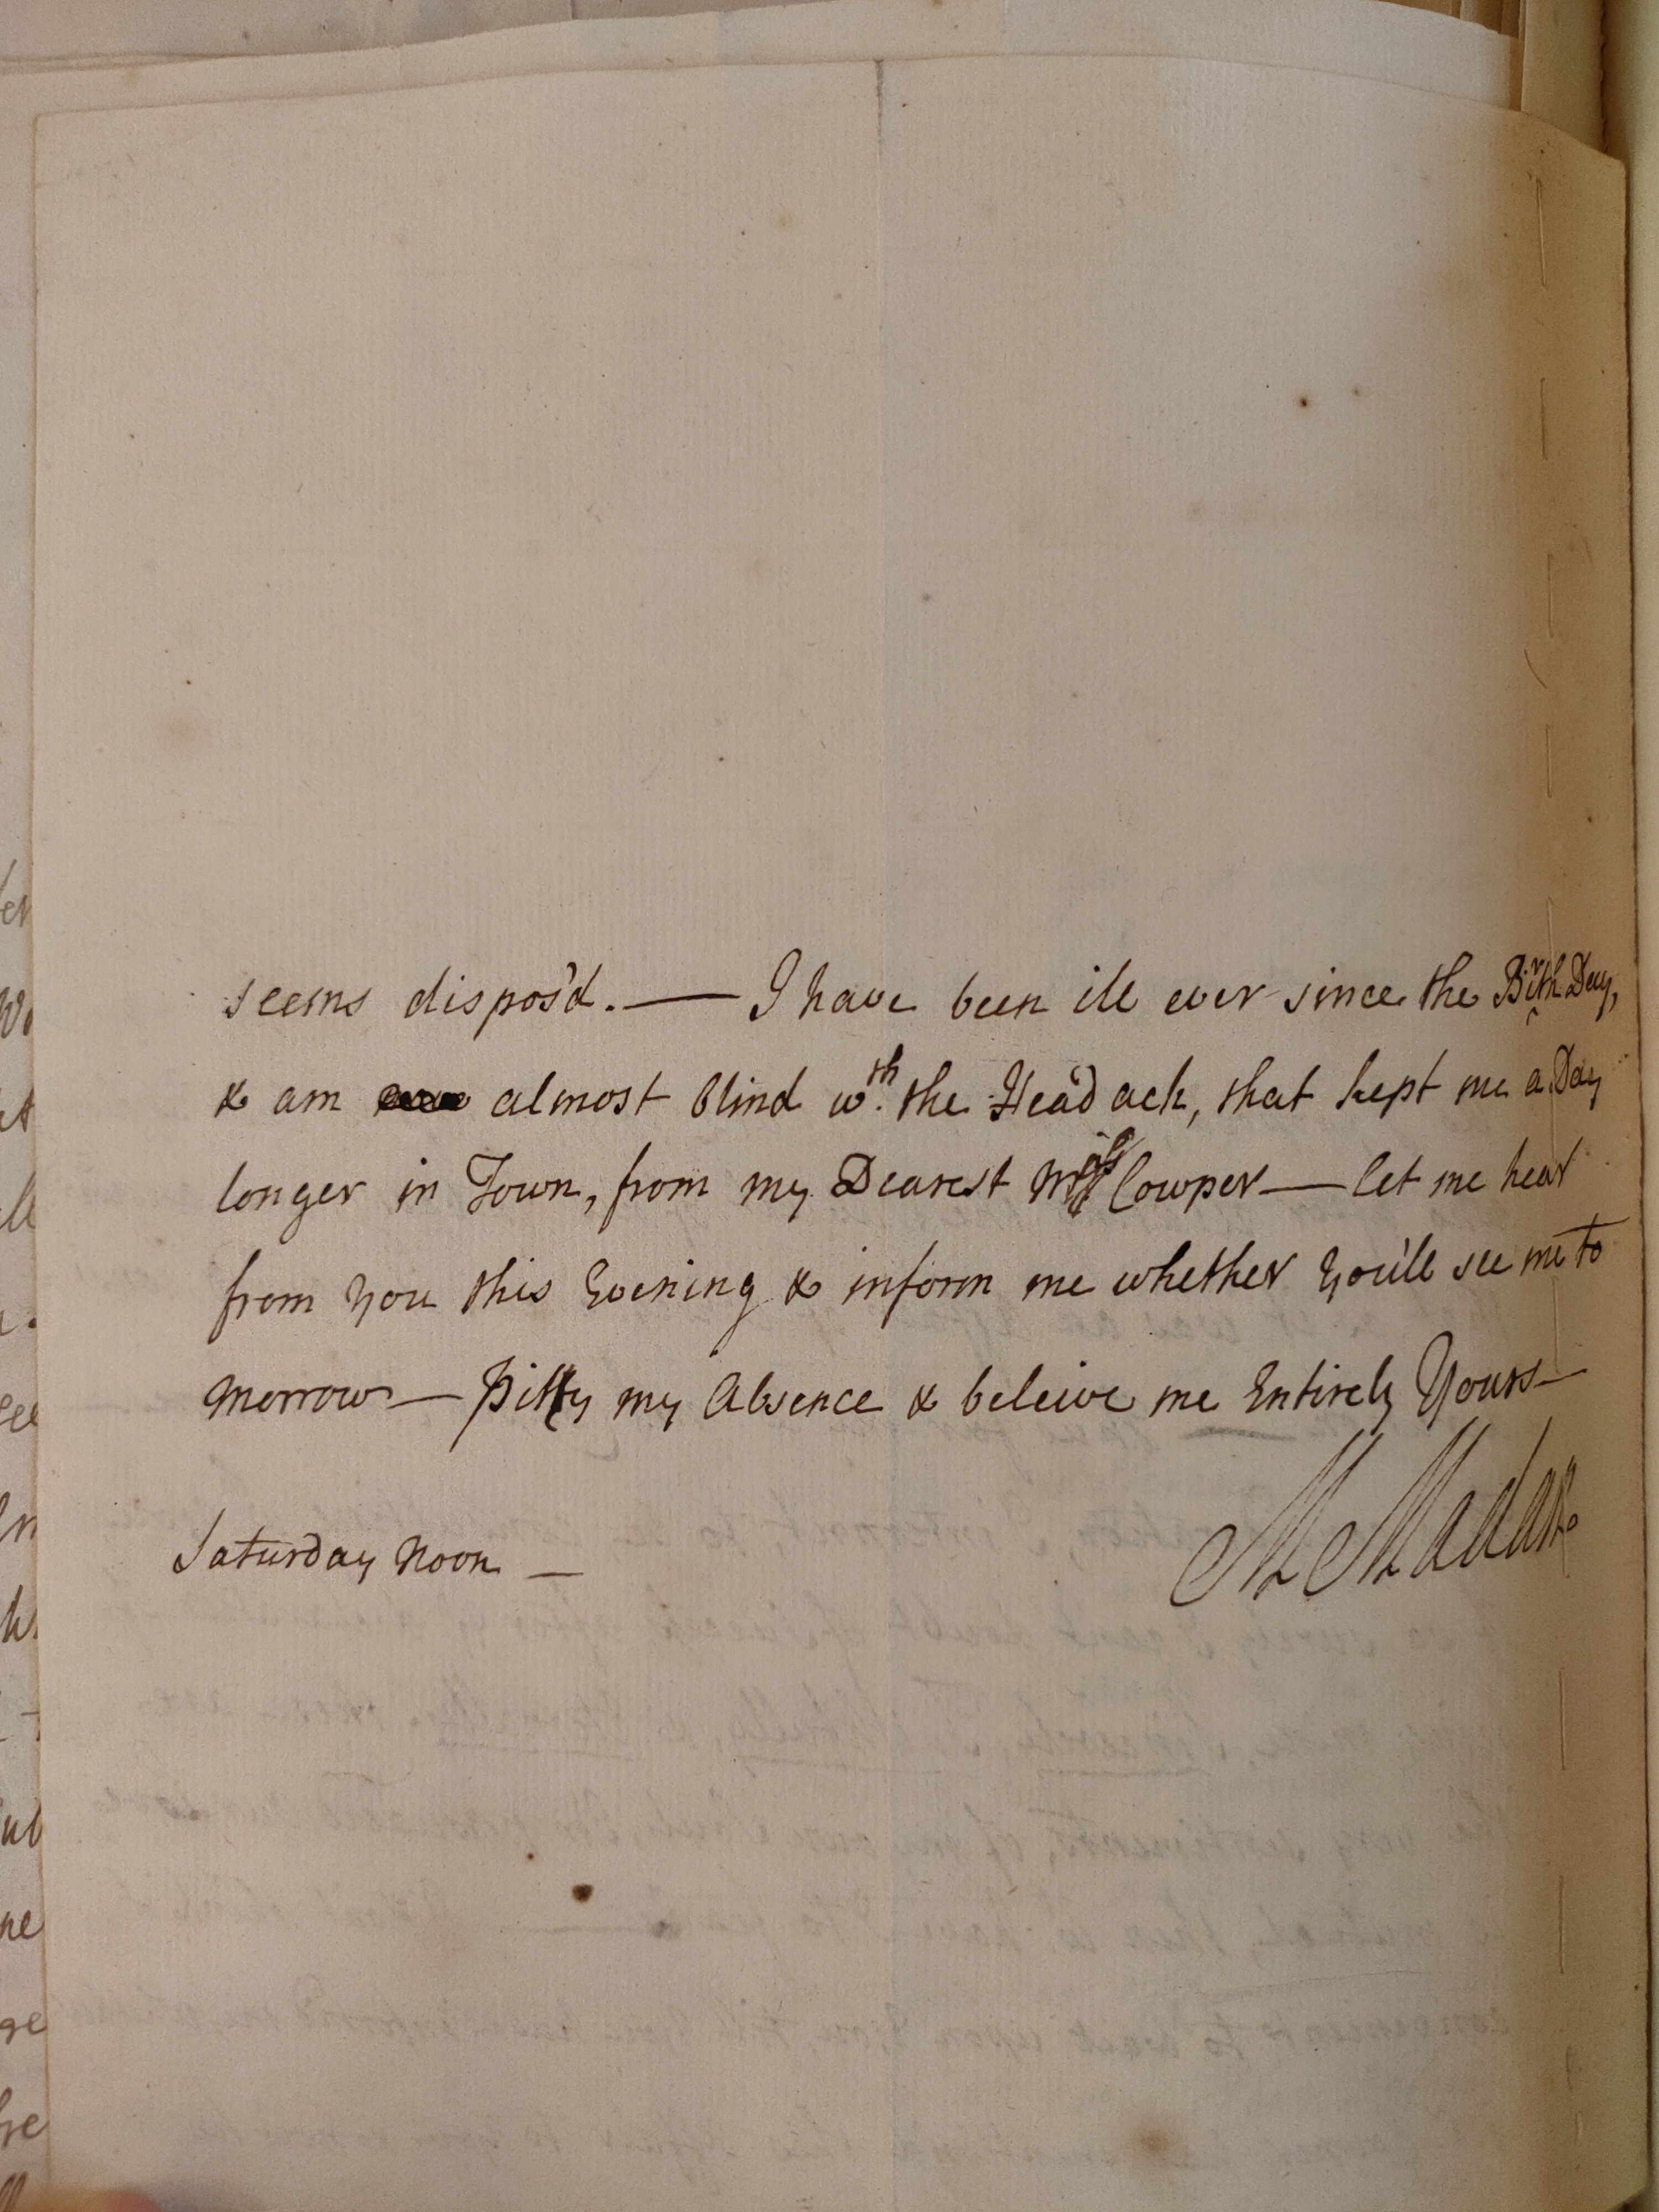 seems dispos'd. — I have been ill ever since the Birth Day,
& am almost blind wth. the Head ach, that kept me a Day
longer in Town, from my Dearest Miss Cowper — let me hear
from you this Evening & inform me whether you'll see me to
morrow — Pitty my Absence & beleive me Entirely Yours —
M Madan
Saturday Noon —